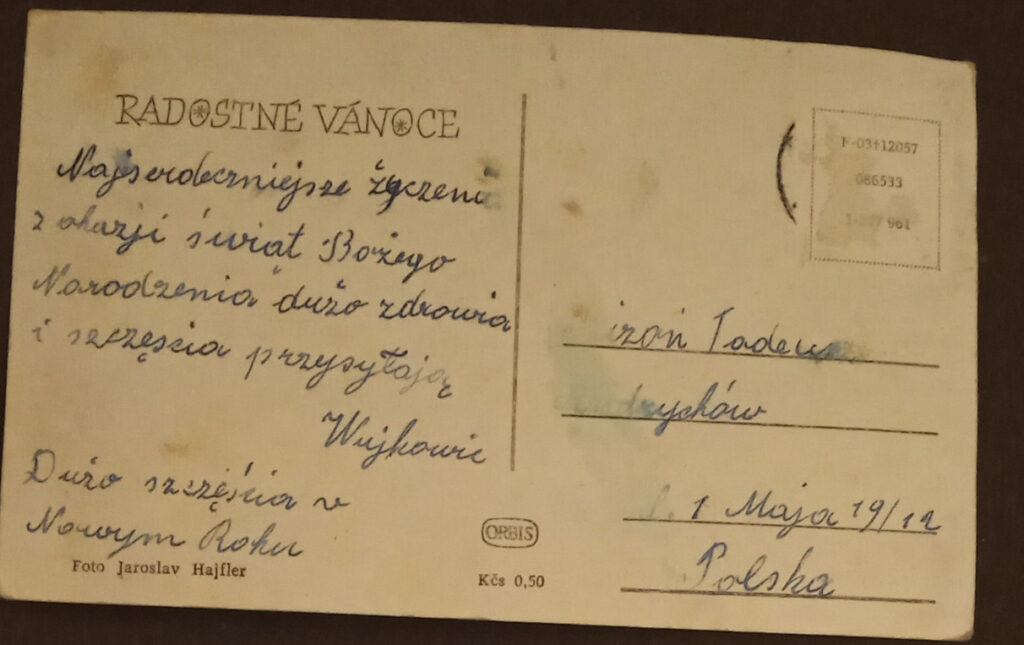 RADOSTNÉ VÁNOCE
Najserdeczniejsze życzenia
z okazji świat Bożego
Narodzenia dużo zdrowia
i szczęścia przysyłają
Wujkowie
Dużo szczęścia w
Nowym Roku
Foto Jaroslav Hajfler
ORBIS
Kčs 0,50
F-03*12057
086533
Tadeusz
1 Maja 19/12
Polska